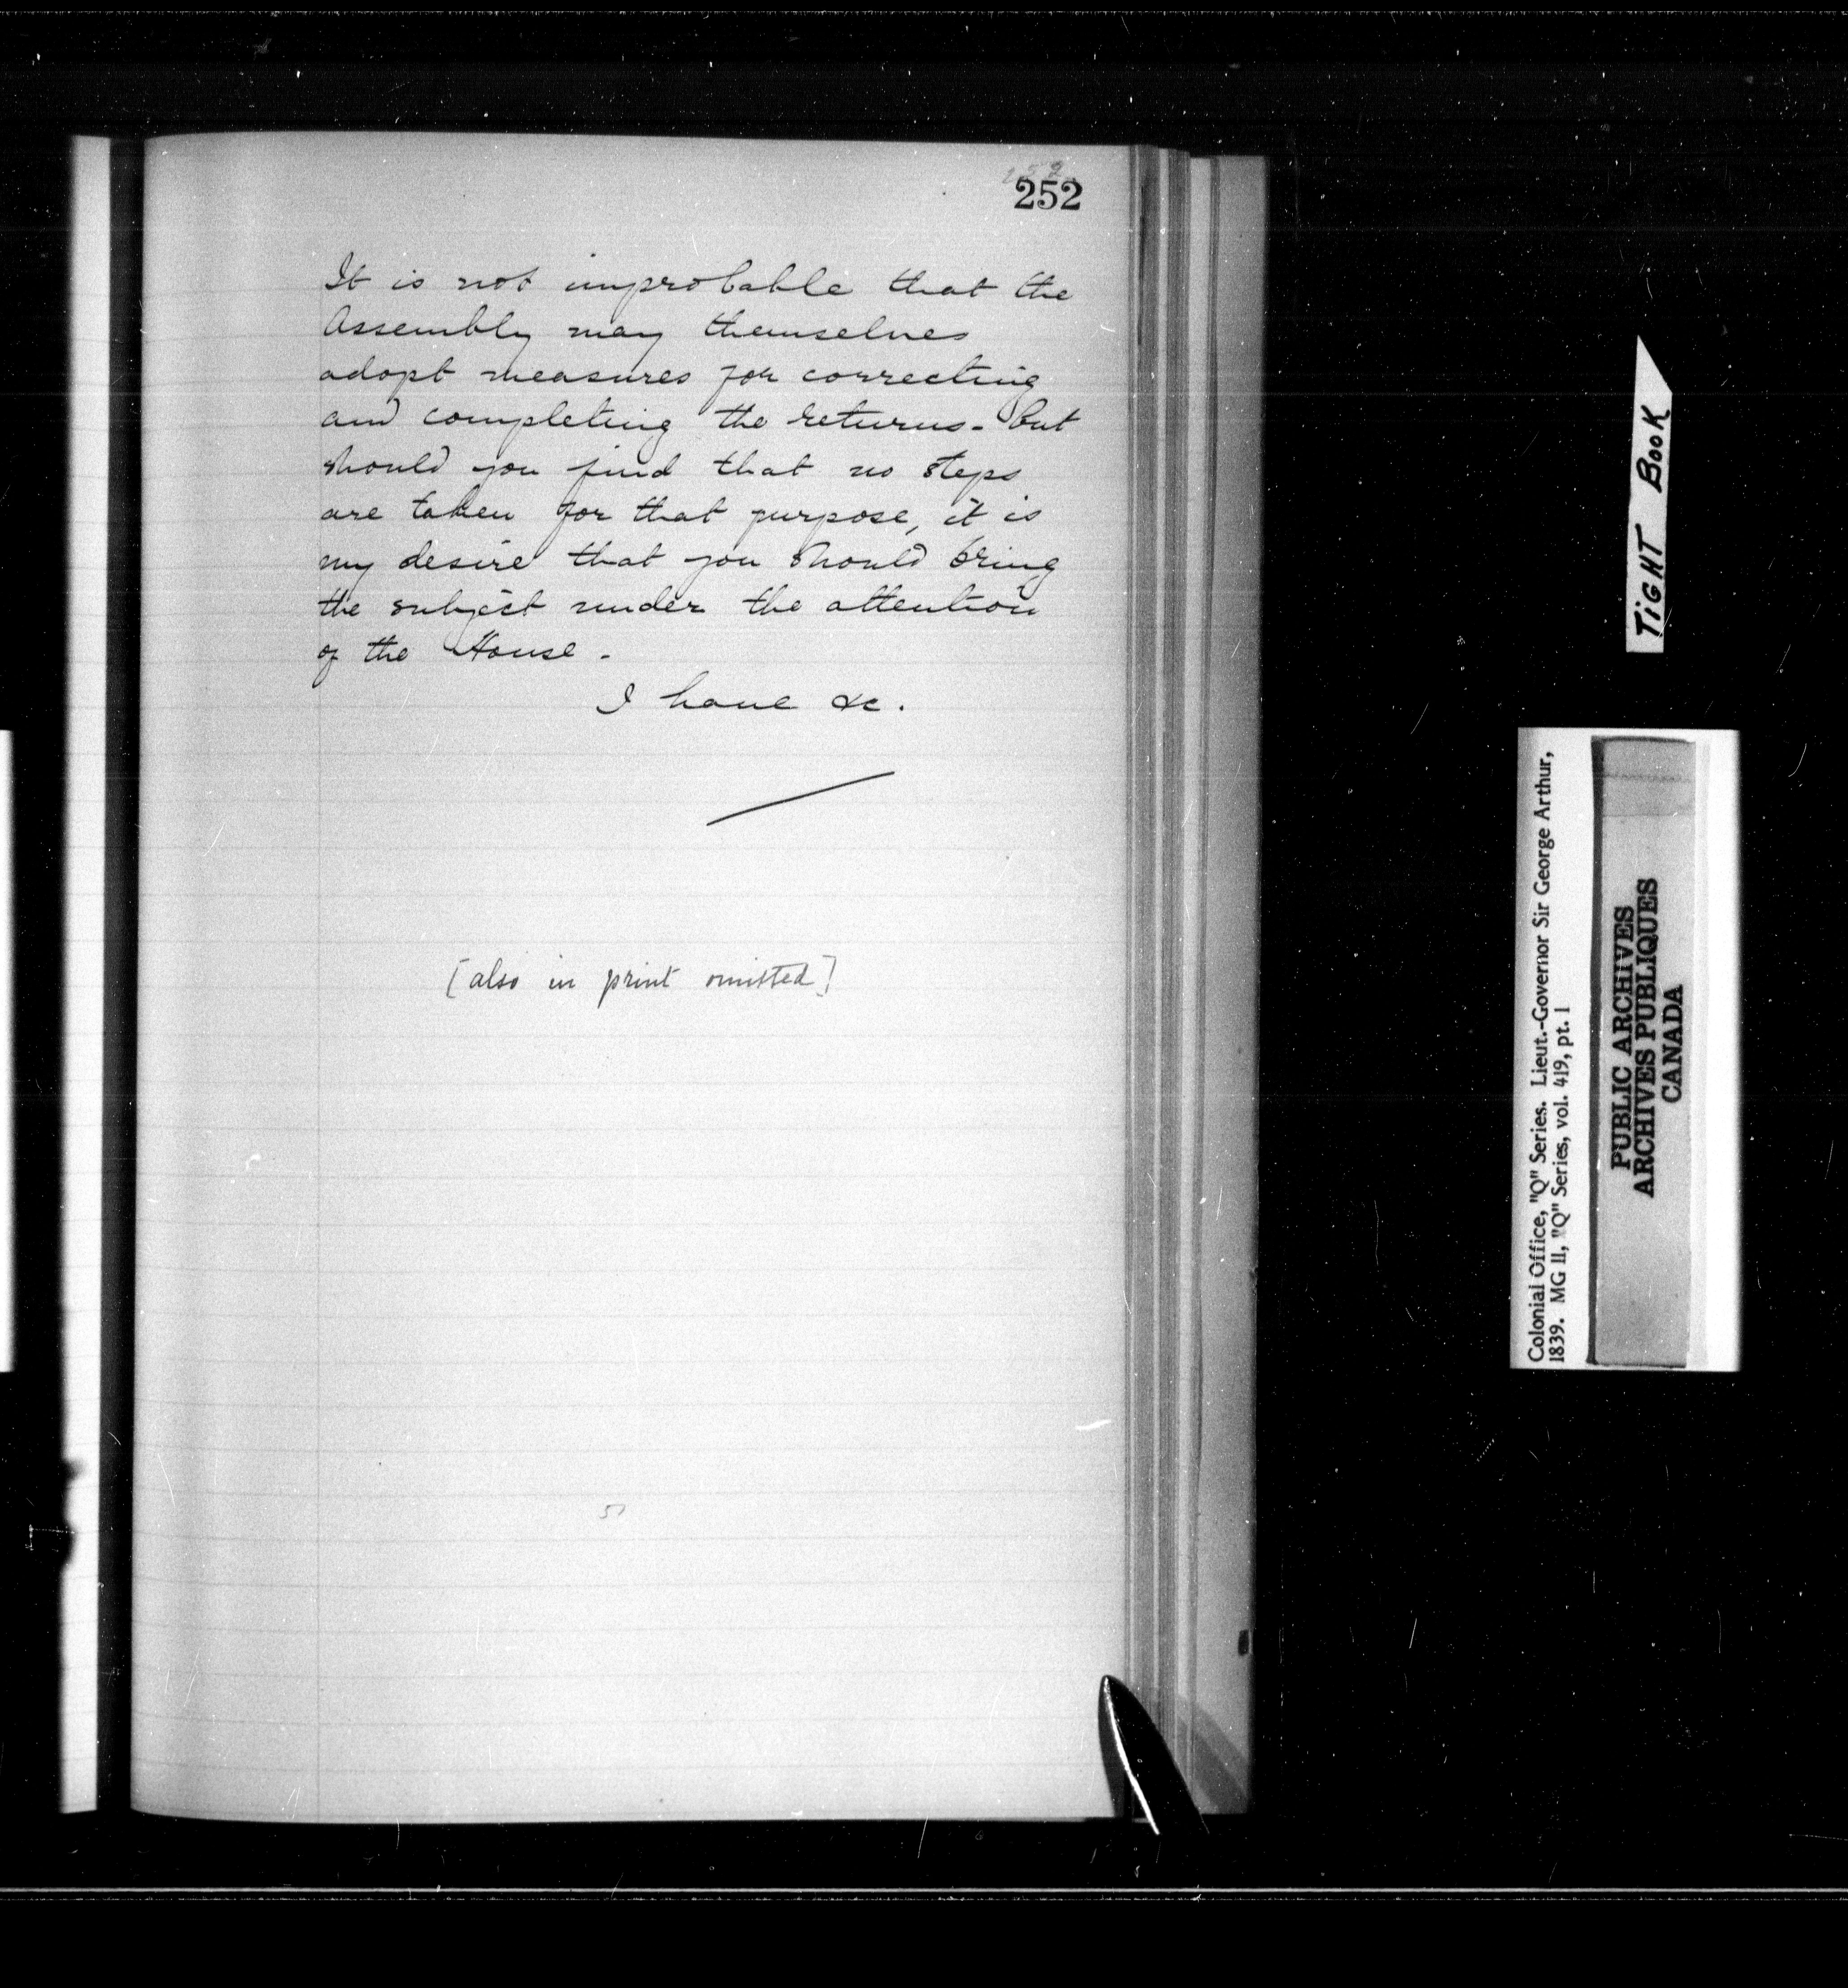 252
252
It is not improbable that the
Assembly may themselves
adopt measures for correcting
and completing the returns - but
should you find that no steps
are taken for that purpose, it is
my desire that you should bring
the subject under the attention
of the House -
I have &c.
[also in print omitted]
TiGHT BooK
Colonial Office, "Q" Series. Lieut.-Governor Sir George Arthur,
1839. MG 11, "Q" Series, vol. 419, pt. 1
PUBLIC ARCHIVES
ARCHIVES PUBLIQUES
CANADA